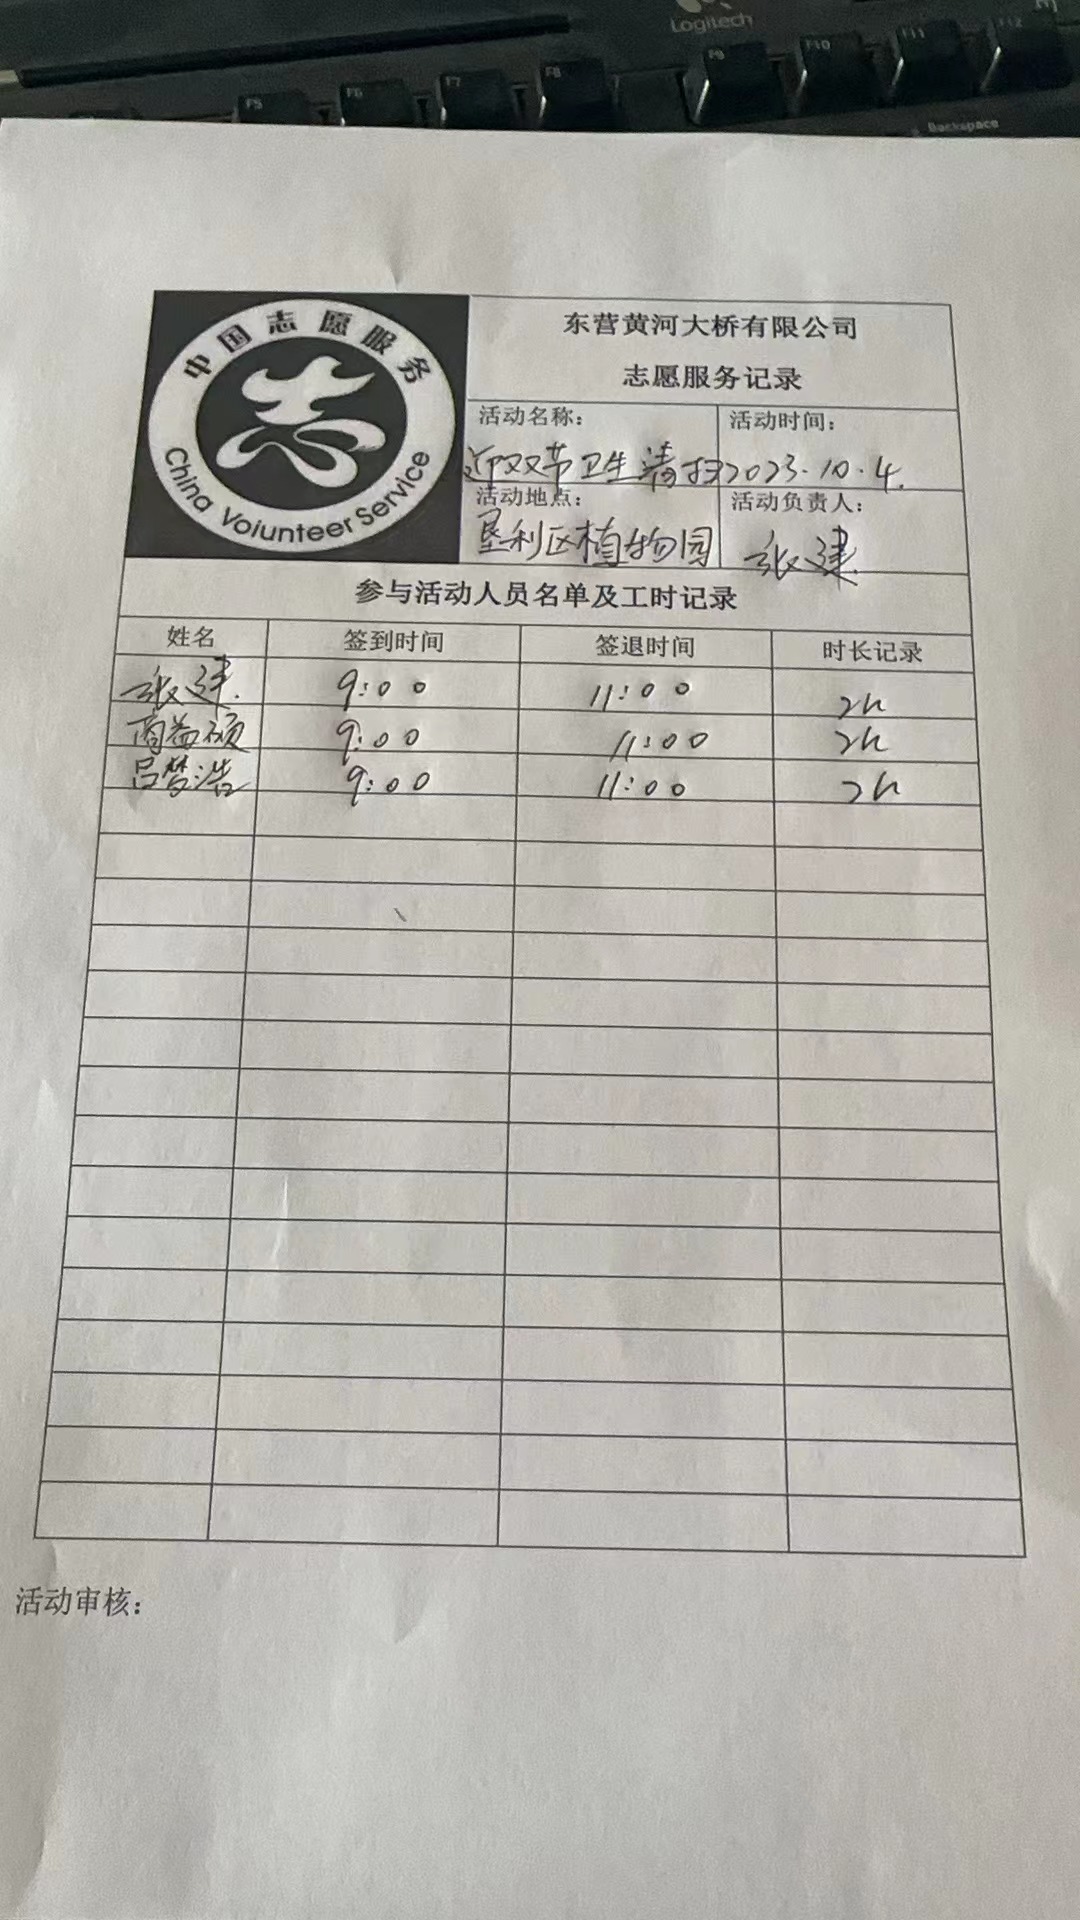 Logitech
F5 F6 F7 F8 F9 F10 F11 F12
Backspace
中国志愿服务
China Voiunteer Service
东营黄河大桥有限公司
志愿服务记录
活动名称：
活动时间：
迎双节卫生清扫
2023.10.4.
活动地点：
活动负责人：
垦利区植物园
张建
参与活动人员名单及工时记录
姓名 签到时间 签退时间 时长记录
张建 9:00 11:00 2h
商益硕 9:00 11:00 2h
吕梦浩 9:00 11:00 2h
活动审核：